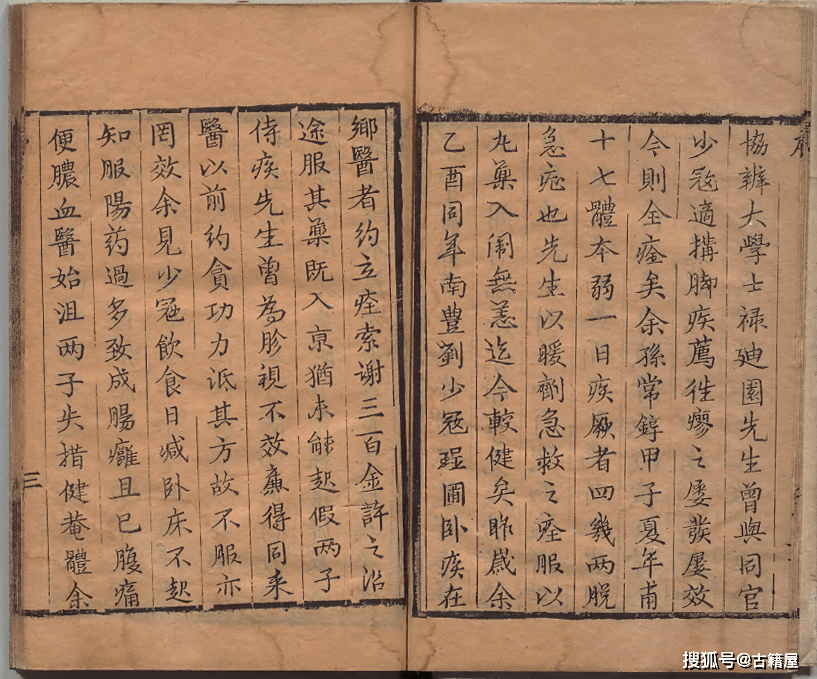 協辦大學士祿廸園先生曾與同官
少寇適搆脚疾薦徃瘳之屡發屡效
今則全痊矣余孫常錞甲子夏年甫
十七體本弱一日疾厥者四幾两脱
急症也先生以暖劑急救之痊服以
丸藥入闈無恙迄今較健矣昨歲余
乙酉同年南豊劉少冦珵圃卧疾在
鄉醫者約立痊索谢三百金許之沿
途服其藥既入京猶未能起假两子
侍疾先生曾為胗視不效得同来
醫以前約貪功力泜其方故不服亦
罔效余見少冦飲食日减卧床不起
知服陽药過多致成腸癰且已腹痛
便膿血醫始沮两子失措健菴體余
三
搜狐号@古籍屋